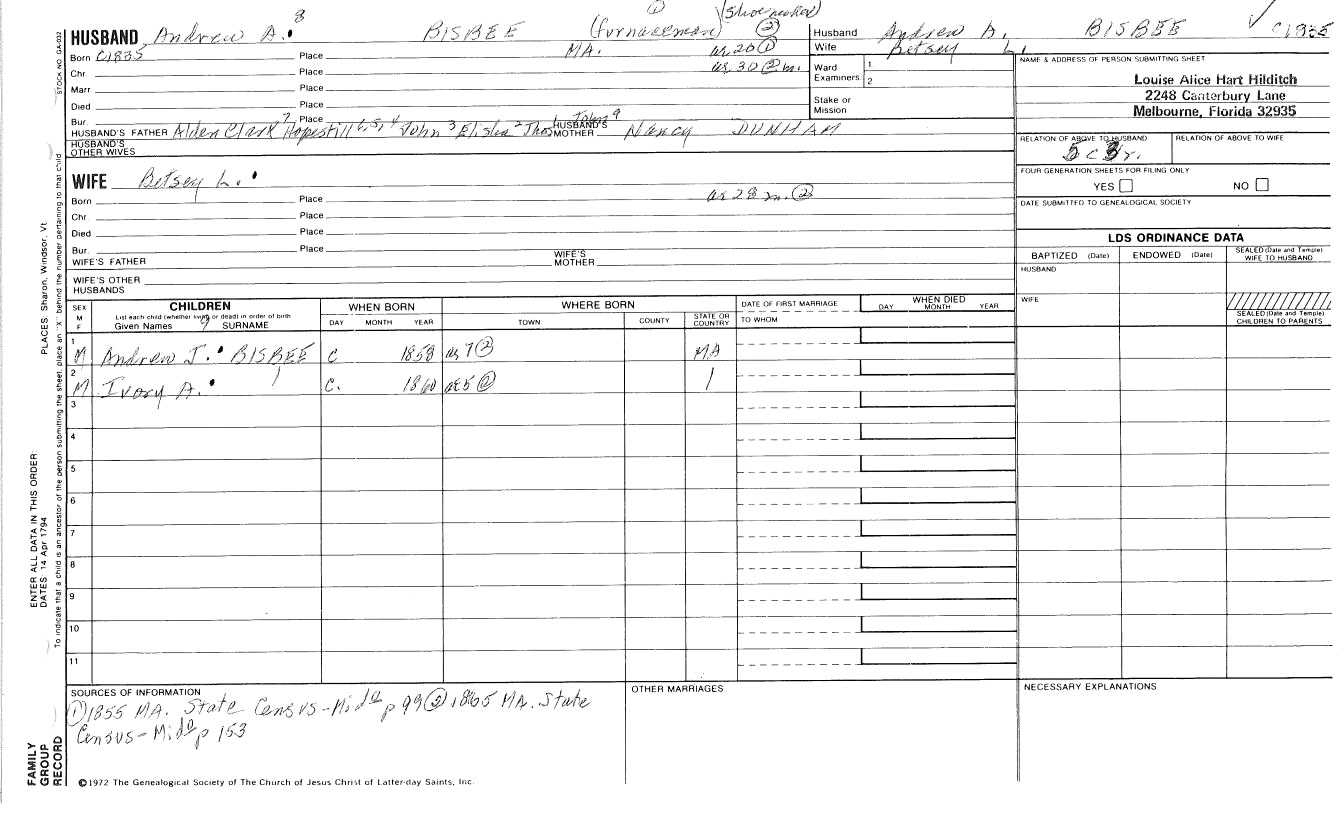 8 ① (Shoemaker)
HUSBAND Andrew A. BISBEE (furnaceman) ②
Born C1835 Place MA. as 20 ①
Chr. Place as 30 ② m.
Marr. Place
Died Place
Bur. Place
HUSBAND'S FATHER Alden Clark 7 Hopestill 6, 5, 4 John 3 Elisha 2 Thos HUSBAND'S MOTHER Nancy DUNHAM
HUSBAND'S OTHER WIVES
WIFE Betsey L.
Born Place as 28 m. ②
Chr. Place
Died Place
Bur. Place
WIFE'S FATHER WIFE'S MOTHER
WIFE'S OTHER HUSBANDS
Husband Andrew A. BISBEE ✓ C1835
Wife Betsey L.
Ward Examiners 1
2
Stake or Mission
NAME & ADDRESS OF PERSON SUBMITTING SHEET
Louise Alice Hart Hilditch
2248 Canterbury Lane
Melbourne, Florida 32935
RELATION OF ABOVE TO HUSBAND RELATION OF ABOVE TO WIFE
FOUR GENERATION SHEETS FOR FILING ONLY
YES NO
DATE SUBMITTED TO GENEALOGICAL SOCIETY
LDS ORDINANCE DATA
BAPTIZED (Date) ENDOWED (Date) SEALED (Date and Temple) WIFE TO HUSBAND
HUSBAND
WIFE
SEALED (Date and Temple) CHILDREN TO PARENTS
SEX M F
CHILDREN
List each child (whether living or dead) in order of birth
Given Names 9 SURNAME
WHEN BORN
DAY MONTH YEAR
WHERE BORN
TOWN COUNTY STATE OR COUNTRY
DATE OF FIRST MARRIAGE
TO WHOM
WHEN DIED
DAY MONTH YEAR
1 M Andrew J. BISBEE C 1858 as 7 ② MA
2 M Ivory A. C. 1860 as 5 ②
3
4
5
6
7
8
9
10
11
SOURCES OF INFORMATION
① 1855 MA. State Census-Midº p 99 ② 1865 MA. State
Census-Midº p 153
OTHER MARRIAGES
NECESSARY EXPLANATIONS
©1972 The Genealogical Society of The Church of Jesus Christ of Latter-day Saints, Inc.
STOCK NO. GA-032
To indicate that a child is an ancestor of the person submitting the sheet, place an "X" behind the number pertaining to that child
PLACES: Sharon, Windsor, Vt
ENTER ALL DATA IN THIS ORDER
DATES: 14 Apr 1794
FAMILY
GROUP
RECORD